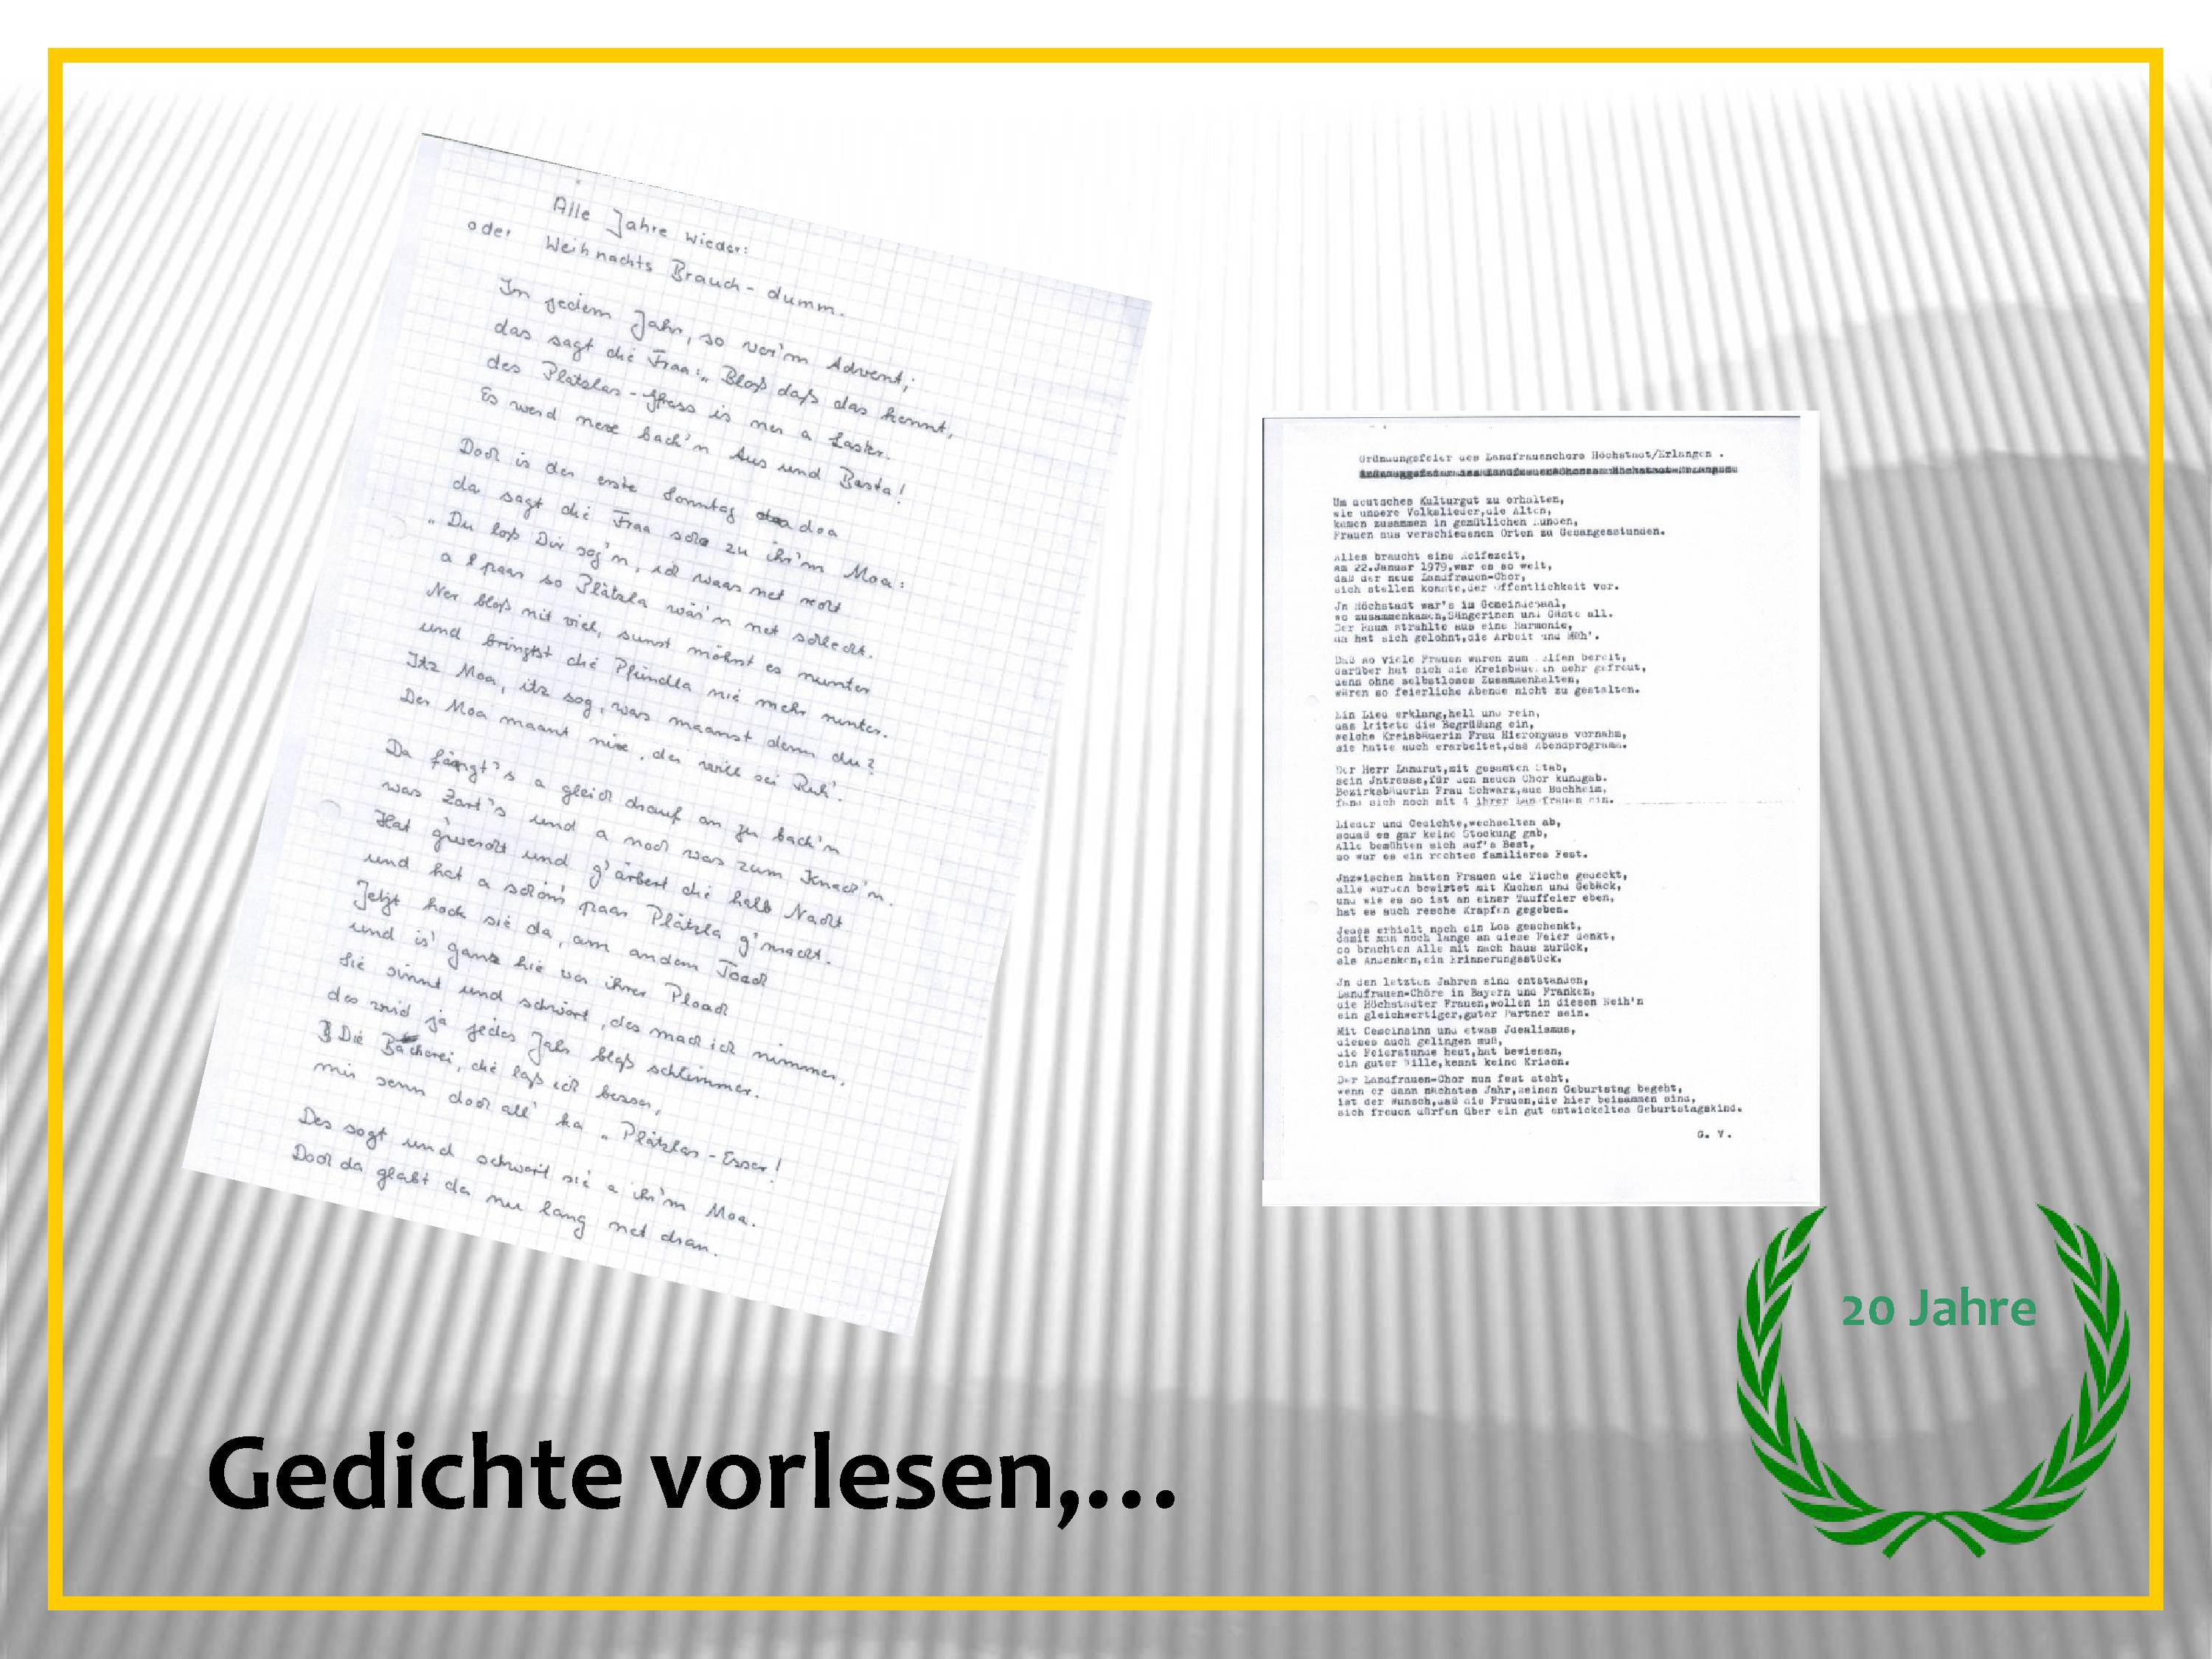 Alle Jahre wieder:
oder Weihnachts Brauch-dumm.
In jedem Jahr, so vor'm Advent,
das sagt die Fraa: „Bloß daß das kennt,
des Plätzlas-Gfress is mer a Laster.
Es werd nexe bach'n Aus und Basta!
Doch is der erste Sonntag doa
da sagt die Fraa scho zu ihr'm Moa:
„Du loß Dir sog'n, ich waas net recht
a poar so Plätzla wär'n net schlecht.
Ner bloß nit viel, sunst möhst es nunter
und bringst die Pfündla nie mehr nunter.
Itz Moa, itz sog, was maanst denn du?
Der Moa maant nixe, der will sei Ruh'.
Da fängt's a gleich drauf an zu bach'n
was Zart's und a noch was zum Knack'n.
Hat g'werch und g'arbert die halb Nacht
und hat a schön's paar Plätzla g'macht.
Jetzt hock sie da, am andern Toach
und is' ganz hie vor ihrer Ploach
Sie sinnt und schwört, des mach ich nimmer,
des wird ja jedes Jahr bloß schlimmer.
Die Bäckerei, die laß ich besser,
mir senn doch all' ka „Plätzlas-Esser!
Des sogt und schwört sie a ihr'm Moa.
Doch da glabt da nu lang net dran.
Gründungsfeier des Landfrauenchors Höchstadt/Erlangen .
Um deutsches Kulturgut zu erhalten,
wie unsere Volkslieder,die Alten,
kamen zusammen in gemütlichen Runden,
Frauen aus verschiedenen Orten zu Gesangesstunden.
Alles braucht eine Reifezeit,
am 22.Januar 1979,war es so weit,
daß der neue Landfrauen-Chor,
sich stellen konnte,der Öffentlichkeit vor.
Jn Höchstadt war's im Gemeindesaal,
wo zusammenkamen,Sängerinen und Gäste all.
Der Raum strahlte aus eine Harmonie,
da hat sich gelohnt,die Arbeit und Müh'.
Daß so viele Frauen waren zum Helfen bereit,
darüber hat sich die Kreisbäuerin sehr gefreut,
denn ohne selbstloses Zusammenhalten,
wären so feierliche Abende nicht zu gestalten.
Ein Lied erklang,hell und rein,
das leitete die Begrüßung ein,
welche Kreisbäuerin Frau Hieronymus vornahm,
sie hatte auch erarbeitet,das Abendprogramm.
Der Herr Landrat,mit gesamten Stab,
sein Jntresse,für den neuen Chor kundgab.
Bezirksbäuerin Frau Schwarz,aus Buchheim,
fand sich noch mit 4 ihrer Landfrauen ein.
Lieder und Gedichte,wechselten ab,
sodaß es gar keine Stockung gab,
Alle bemühten sich auf's Best,
so war es ein rechtes familieres Fest.
Jnzwischen hatten Frauen die Tische gedeckt,
alle wurden bewirtet mit Kuchen und Gebäck,
und wie es so ist an einer Tauffeier eben,
hat es auch resche Krapfen gegeben.
Jedes erhielt noch ein Los geschenkt,
damit man noch lange an diese Feier denkt,
so brachten Alle mit nach haus zurück,
als Andenken,ein Erinnerungsstück.
Jn den letzten Jahren sind entstanden,
Landfrauen-Chöre in Bayern und Franken,
die Höchstadter Frauen,wollen in diesen Reih'n
ein gleichwertiger,guter Partner sein.
Mit Gemeinsinn und etwas Jdealismus,
dieses auch gelingen muß,
die Feierstunde heut,hat bewiesen,
ein guter Wille,kennt keine Krisen.
Der Landfrauen-Chor nun fest steht,
wenn er dann nächstes Jahr,seinen Geburtstag begeht,
ist der Wunsch,daß die Frauen,die hier beisammen sind,
sich freuen dürfen über ein gut entwickeltes Geburtstagskind.
G. V.
20 Jahre
Gedichte vorlesen,...